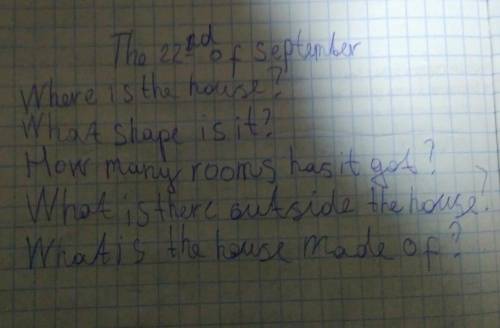 The 22nd of september
Where is the house?
What shape is it?
How many rooms has it got?
What is there outside the house?
What is the house made of?